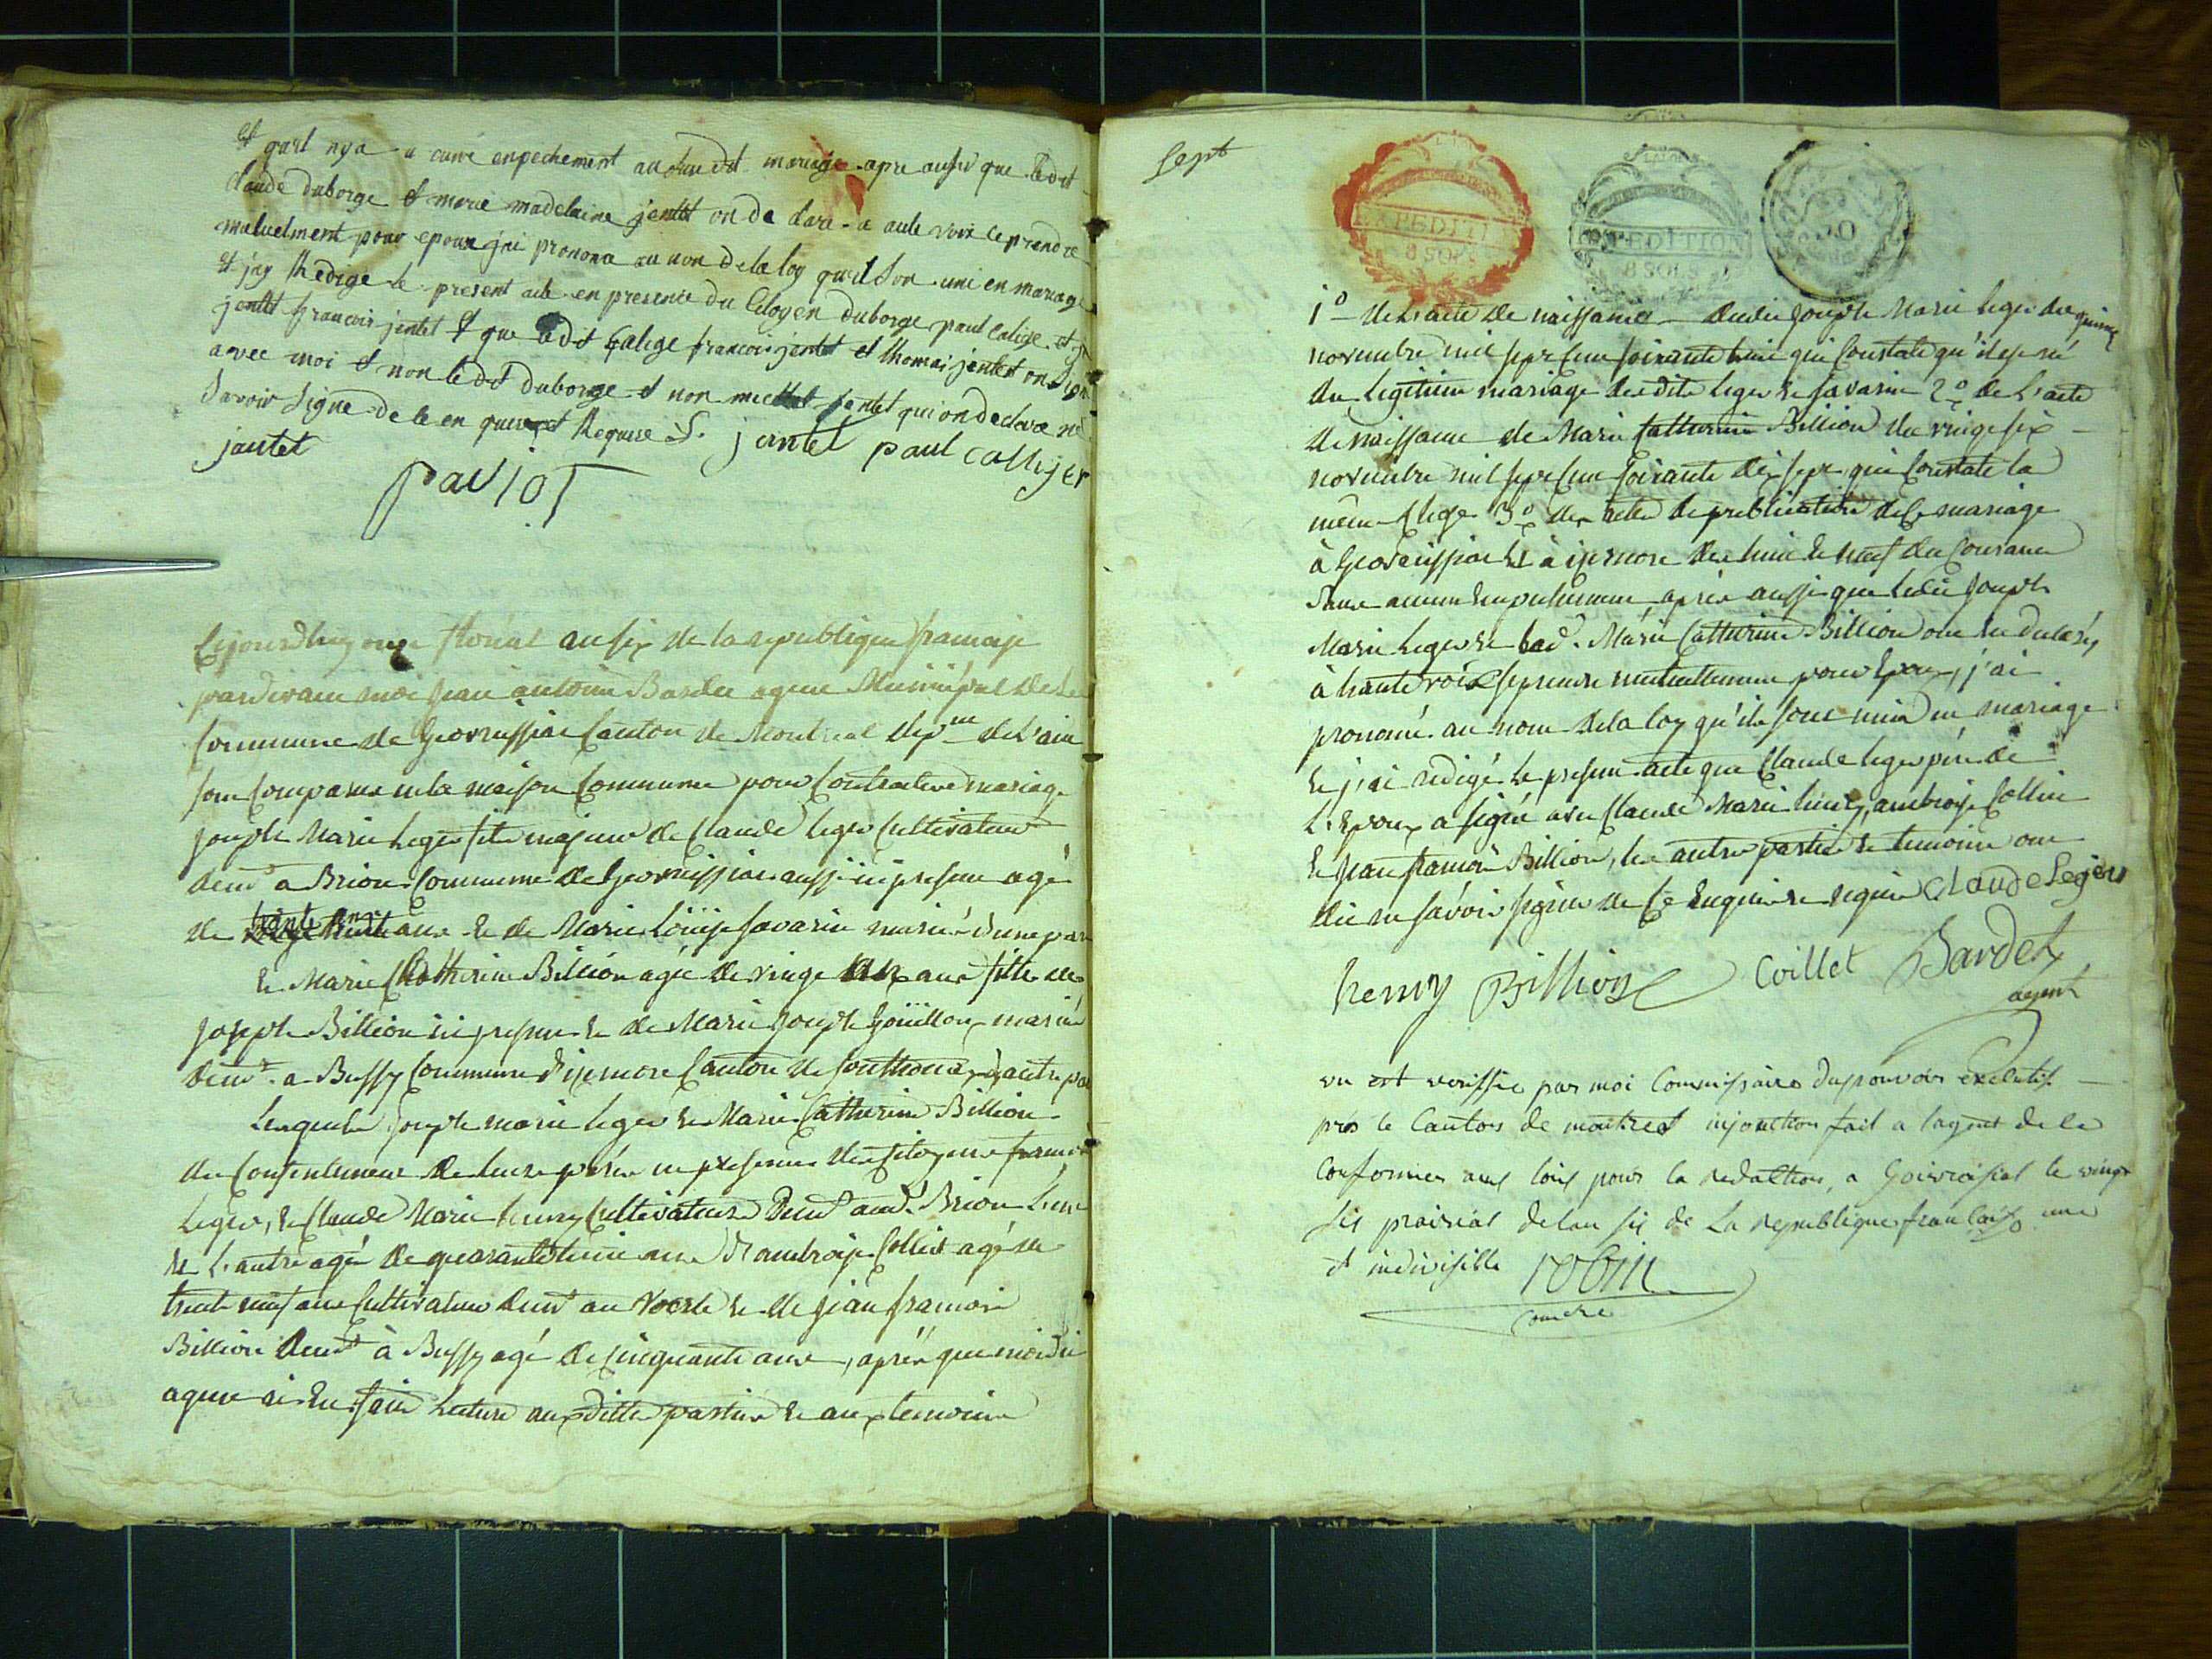 Et quil nya a cune enpechement au susdit mariage apre aussi que ledit
Claude duborge et marie madelaine jentet on de clare a aute voix ce prendre
mutuelment pour epoux jai prononce au non de la loy quil son uni en mariage
Et jay Redige le present acte en presence du Citoyen duborge paul Calige et
jentet francois jentet Et que a dit Calige francois jentet et thomas jentet on signe
avec moi et non le dit duborge et non jentet qui on declare ne
Savoir Signe de le en quis et Requere S. jantet paul calliger
jantet
paviot
Cejourdhuy onze floreal an six de la republique francaise
pardevant moi jean antoine Bardet agent Municipal de la
Commune de Geovreissiat Canton de Montreal depm de L'ain
sont Comparus en la maison Commune pour Contracter mariage
joseph Marie Leger fils majeur de Claude leger Cultivateur
demt a Brion Commune de Geovreissiat aussi ici present agé
de trente ans et de Marie Louise Savarin mariés d'une part
Et Marie Catherine Billion agée de vingt ans fille de
joseph Billion ici present et de Marie joseph Goüilloux mariés
demt. a Bussy Commune d'izernore Canton de Sonthonax, d'autre part
Lesquels joseph marie leger et Marie Catherine Billion
du Consentement de leurs pères en presence des Citoyens francois
Leger, et Claude Marie henry Cultivateurs Demt aud. Brion L'un
et L'autre agé de quarante huit ans d'ambroise Collet agé de
trente neuf ans Cultivateur demt au Voerle et de jean francois
Billion demt à Bussy agé de Cinquante ans, après que moi dit
agent ai Eu fait Lecture aux dittes parties et aux temoins
sept
EXPEDITI
8 SOLS
EXPEDITION
8 SOLS
1º de L'acte de naissance dudit joseph Marie leger du quinze
novembre mil sept Cent soixante huit qui Constate qu'il est né
du Legitime mariage desdits leger et savarin 2º de L'acte
de naissance de Marie Catherine Billion du vingt six
novembre mil sept Cent soixante dix sept qui Constate la
même Chose 3º des actes de publication de ce mariage
à Geovreissiat et à izernore des huit et neuf du Courant
sans aucun Empechement, après aussi que ledit joseph
Marie Leger et lad. Marie Catherine Billion ont eu declaré
à haute voix se prendre mutuellement pour Epoux, j'ai
prononcé au nom de la loy qu'ils sont unis en mariage
et j'ai redigé le present acte que Claude leger père de
L'Epoux a signé avec Claude Marie henry, ambroise Collet
Et jean francois Billion, les autres parties et temoins ont
dit ne savoir signer de Ce Enquis et requis Claude Leger
henry Billion Coillet Bardet
agent
vu et veriffié par moi Commissaire du pouvoir executif
près le Canton de montreal injonction fait a lagent de se
Conformer aux loix pour la redaction, a Goivroisiat le vingt
six prairial de lan six de La republique francaise une
et indivisible robin